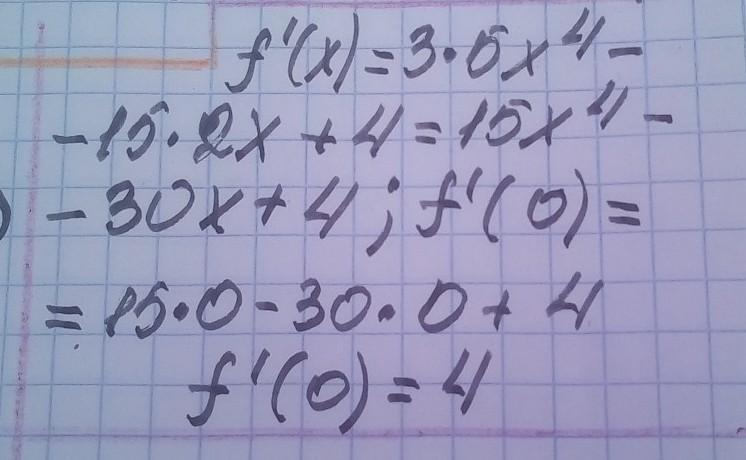 f'(x) = 3·5x⁴ -
- 15·2x + 4 = 15x⁴ -
- 30x + 4; f'(0) =
= 15·0 - 30·0 + 4
f'(0) = 4